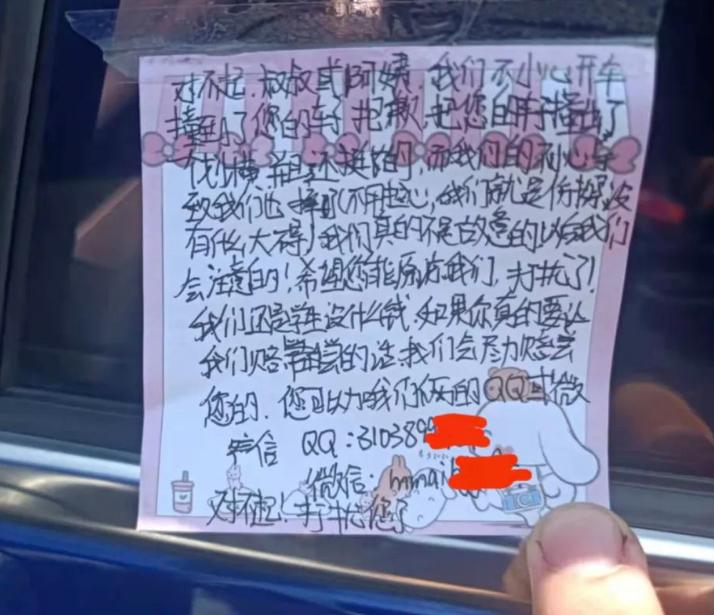 对不起,叔叔或阿姨,我们不小心开车
撞到了您的车,抱歉,把您的车子撞出了
划横,还挺的,而我们的不小心导
致我们也摔了(不用担心,我们就是仃没
有什么大碍)我们真的不是故意的以后我们
会注意的!希望您能原谅我们,打扰了!
我们还是学生没什么钱,如果你真的要让
我们赔尝的话,我们会尽力赔尝
您的.您可以加我们家的QQ或微
信 QQ:310389
微信:
对不起!打扰您了